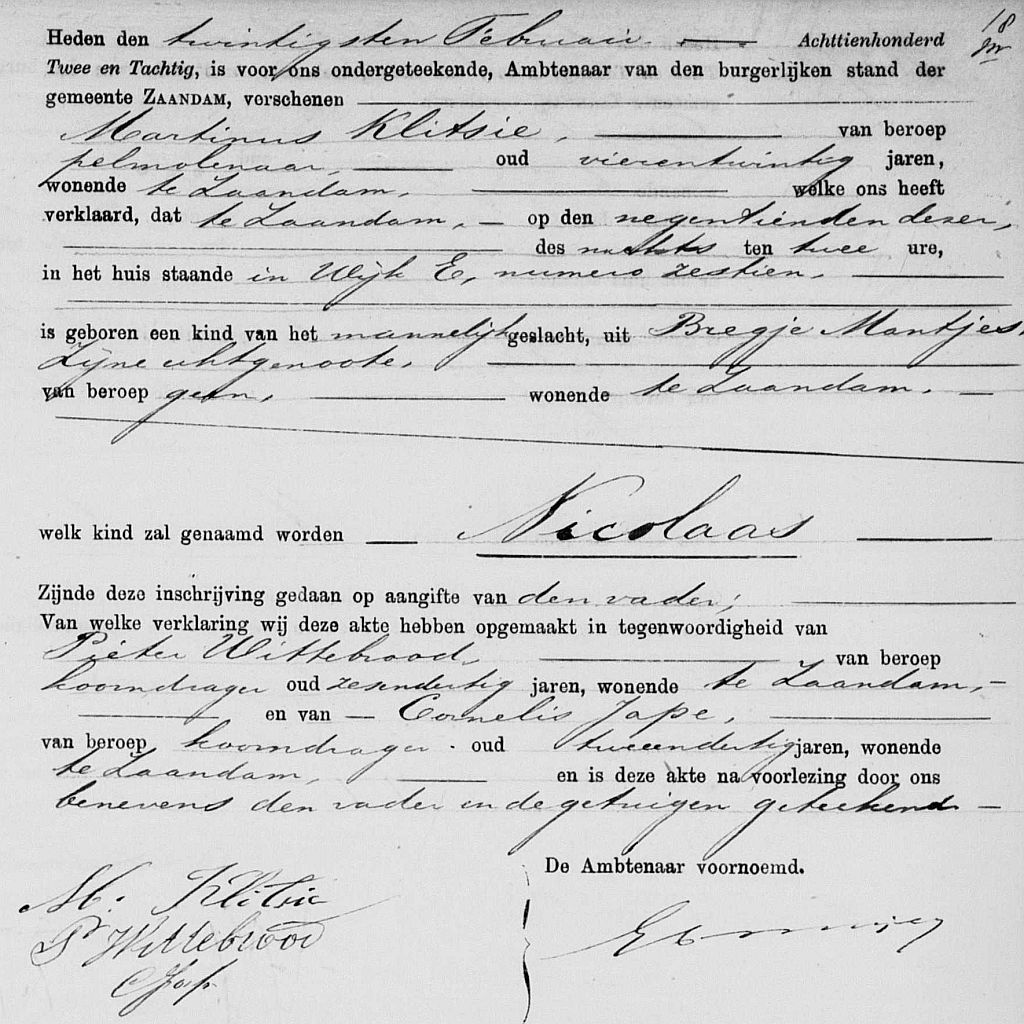 18
Heden den twintigsten Februari Achttienhonderd
Twee en Tachtig, is voor ons ondergeteekende, Ambtenaar van den burgerlijken stand der
gemeente ZAANDAM, verschenen
Martinus Klitsie, van beroep
pelmolenaar, oud vierentwintig jaren,
wonende te Zaandam, welke ons heeft
verklaard, dat te Zaandam, op den negentienden dezer,
des nachts ten twee ure,
in het huis staande in Wijk E, numero zestien,
is geboren een kind van het mannelijk geslacht, uit Bregje Mantjes,
Zijne echtgenoote,
van beroep geen, wonende te Zaandam,
welk kind zal genaamd worden Nicolaas
Zijnde deze inschrijving gedaan op aangifte van den vader;
Van welke verklaring wij deze akte hebben opgemaakt in tegenwoordigheid van
Pieter Wittebrood, van beroep
koorndrager oud zesendertig jaren, wonende te Zaandam,
en van Cornelis Jape,
van beroep koorndrager oud tweeendertig jaren, wonende
te Zaandam, en is deze akte na voorlezing door ons
benevens den vader en de getuigen geteekend
De Ambtenaar voornoemd.
M: Klitsie
P Wittebrood
C Jape